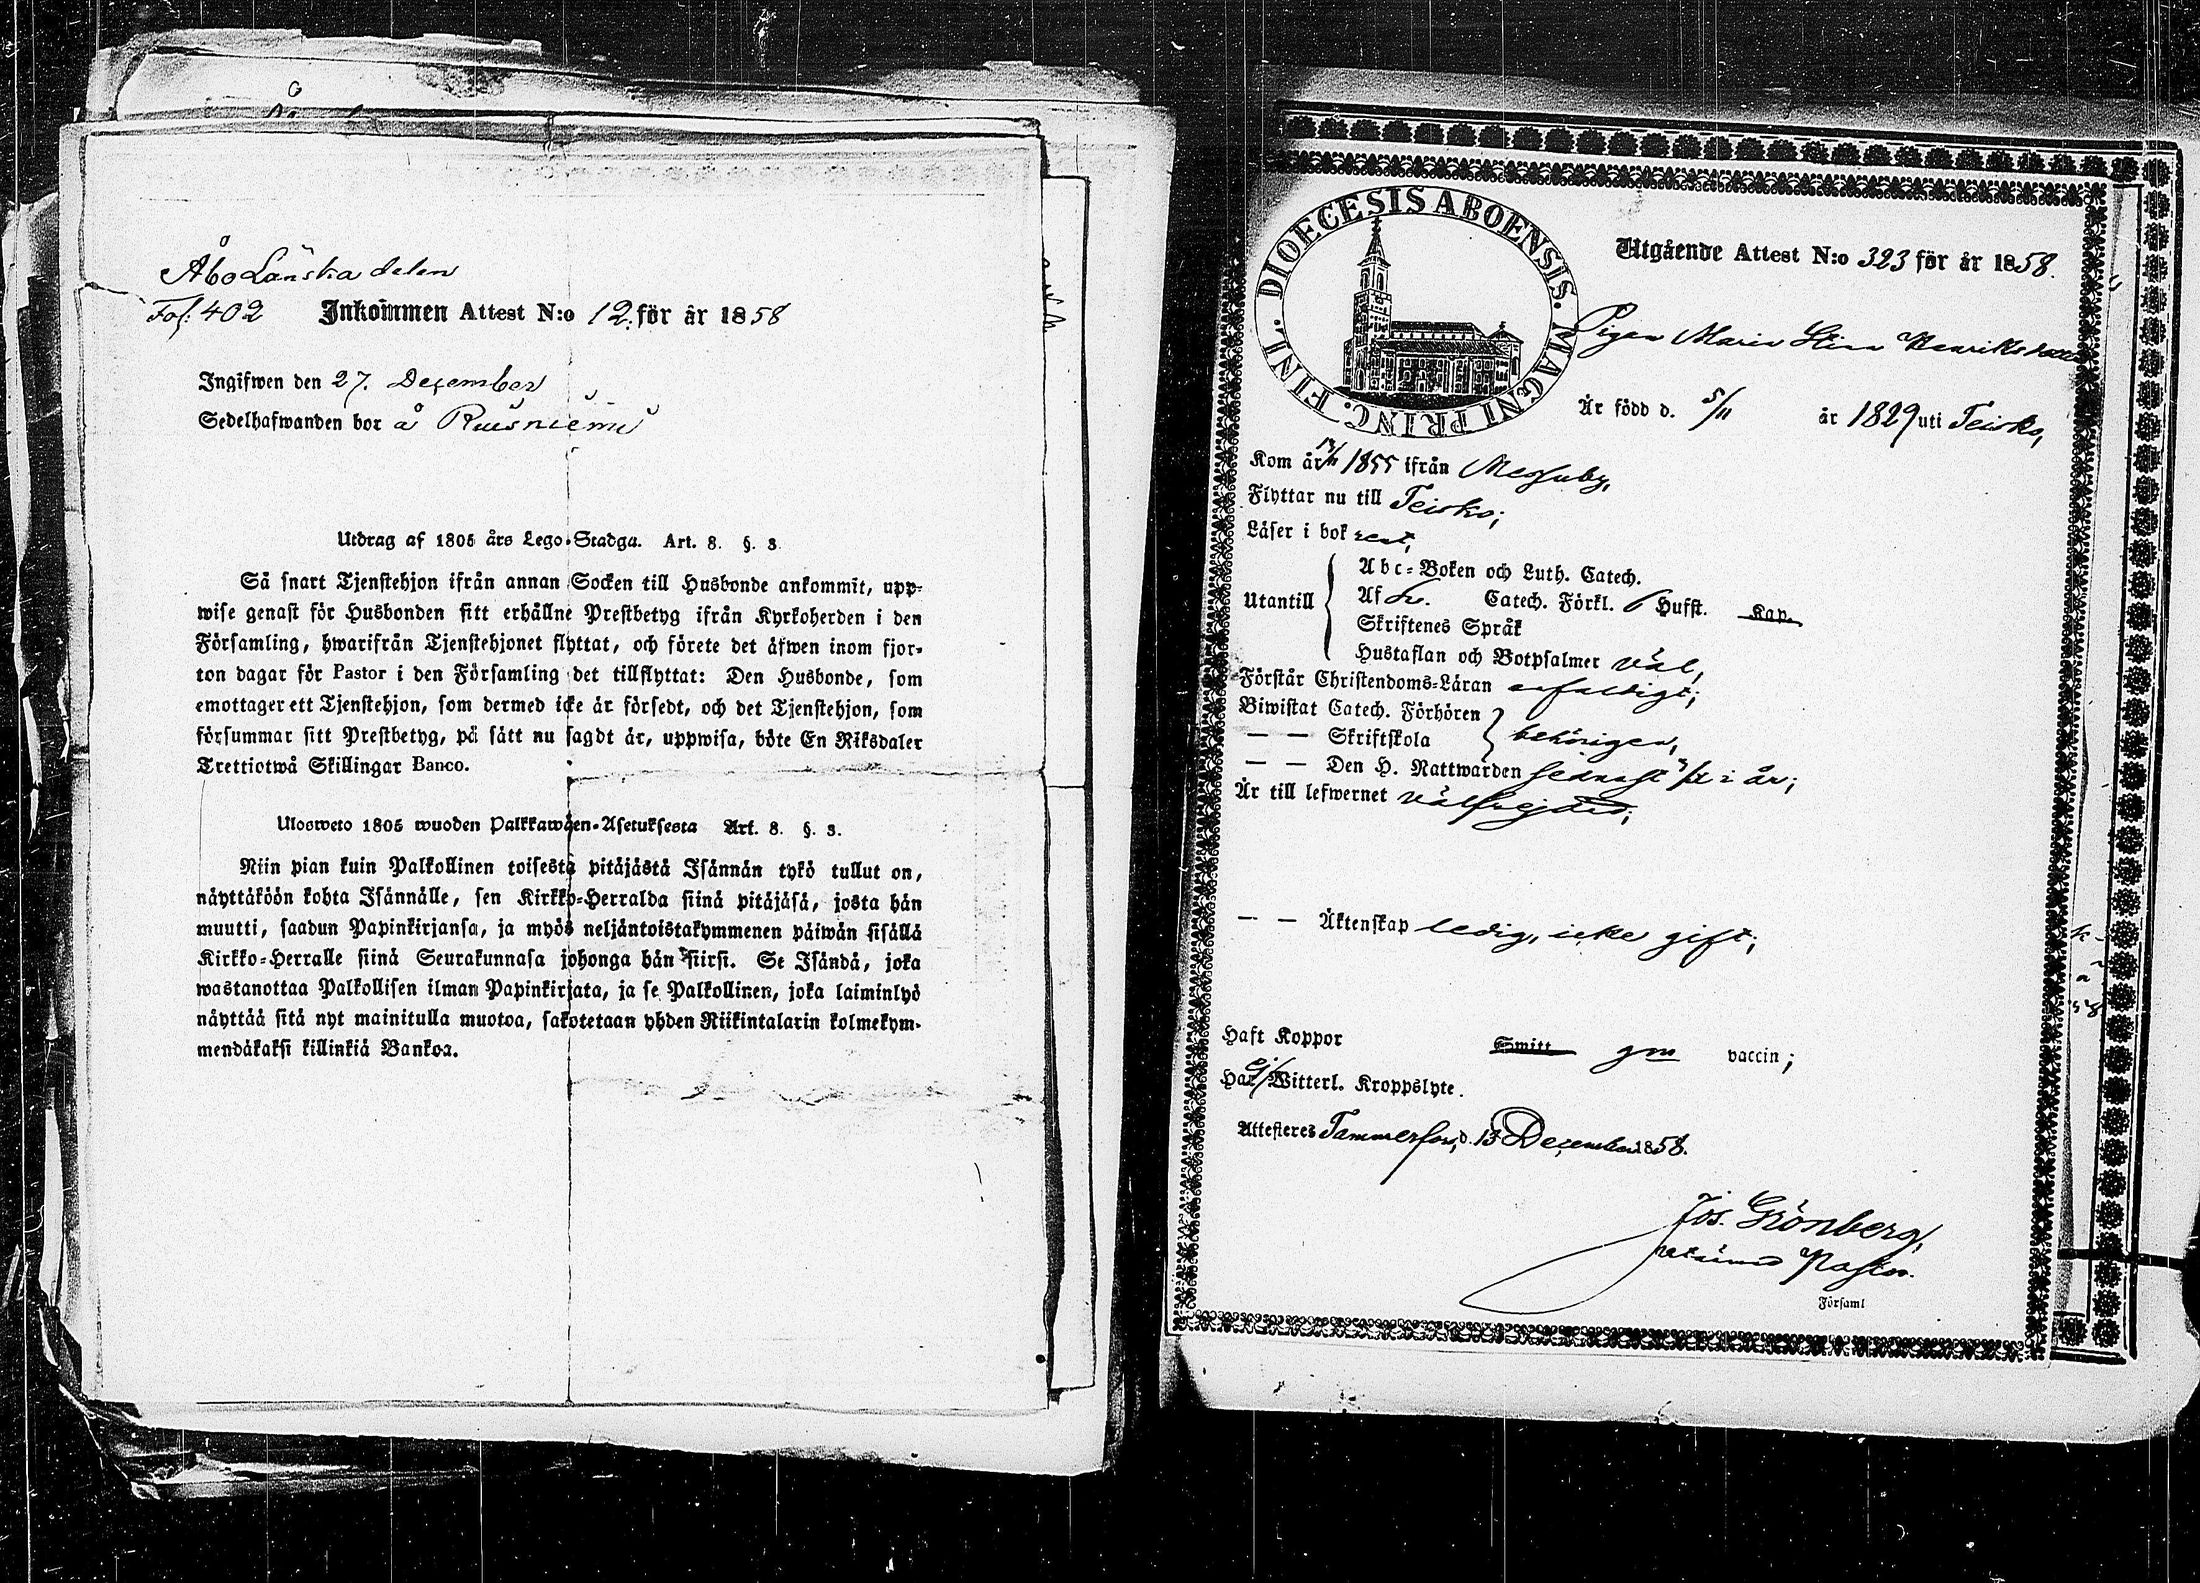 Åbo Länska delen
Fol: 402 Inkommen Attest N:o 12. för år 1858
Ingifwen den 27. December
Sedelhafwanden bor å Ruusniemi
Utdrag af 1805 års Lego-Stadga. Art. 8. §. 3.
Så snart Tjenstehjon ifrån annan Socken till Husbonde ankommit, upp-
wise genast för Husbonden sitt erhållne Prestbetyg ifrån Kyrkoherden i den
Församling, hwarifrån Tjenstehjonet flyttat, och förete det äfwen inom fjor-
ton dagar för Pastor i den Församling det tillflyttat: Den Husbonde, som
emottager ett Tjenstehjon, som dermed icke är försedt, och det Tjenstehjon, som
försummar sitt Prestbetyg, på sätt nu sagdt är, uppwisa, böte En Riksdaler
Trettiotwå Skillingar Banco.
Ulosweto 1805 wuoden Palkkawäen-Asetuksesta Art. 8. §. 3.
Niin pian kuin Palkollinen toisesta pitäjästä Isännän tykö tullut on,
näyttäköön kohta Isännälle, sen Kirkko-Herralda siinä pitäjäsä, josta hän
muutti, saadun Papinkirjansa, ja myös neljäntoistakymmenen päiwän sisällä
Kirkko-Herralle siinä Seurakunnasa johonga hän siirsi. Se Isändä, joka
wastanottaa Palkollisen ilman Papinkirjata, ja se Palkollinen, joka laiminlyö
näyttää sitä nyt mainitulla muotoa, sakotetaan yhden Riikintalarin kolmekym-
mendäkaksi killinkiä Bankoa.
DIOECESIS ABOENSIS. MAGNI PRINC. FINL.
Utgående Attest N:o 323 för år 1858.
Pigan Maria Stina Henriksdotter
Är född d. 5/11 år 1829 uti Teisko,
Kom år 1855 ifrån Messuby,
Flyttar nu till Teisko;
Läser i bok rent,
Utantill
Abc-Boken och Luth. Catech.
Af Catech. Förkl. Hufst. Kap.
Skriftenes Språk
Hustaflan och Botpsalmer väl,
Förstår Christendoms-Läran enfaldigt;
Biwistat Catech. Förhören
— — Skriftskola behörigen,
— — Den H. Nattwarden sednast i år;
Är till lefwernet välfrejdad;
— — Äktenskap ledig, icke gift;
Haft Koppor Smitt gm vaccin;
Har ej Witterl. Kroppslyte.
Attesteres Tammerfors, d. 13 December 1858.
Jos. Grönberg,
Pastor.
Församl